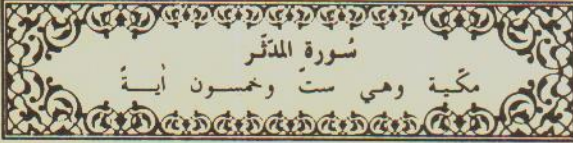 سُورة المدّثّر
مكّية وهي ستّ وخمسون أيـةً